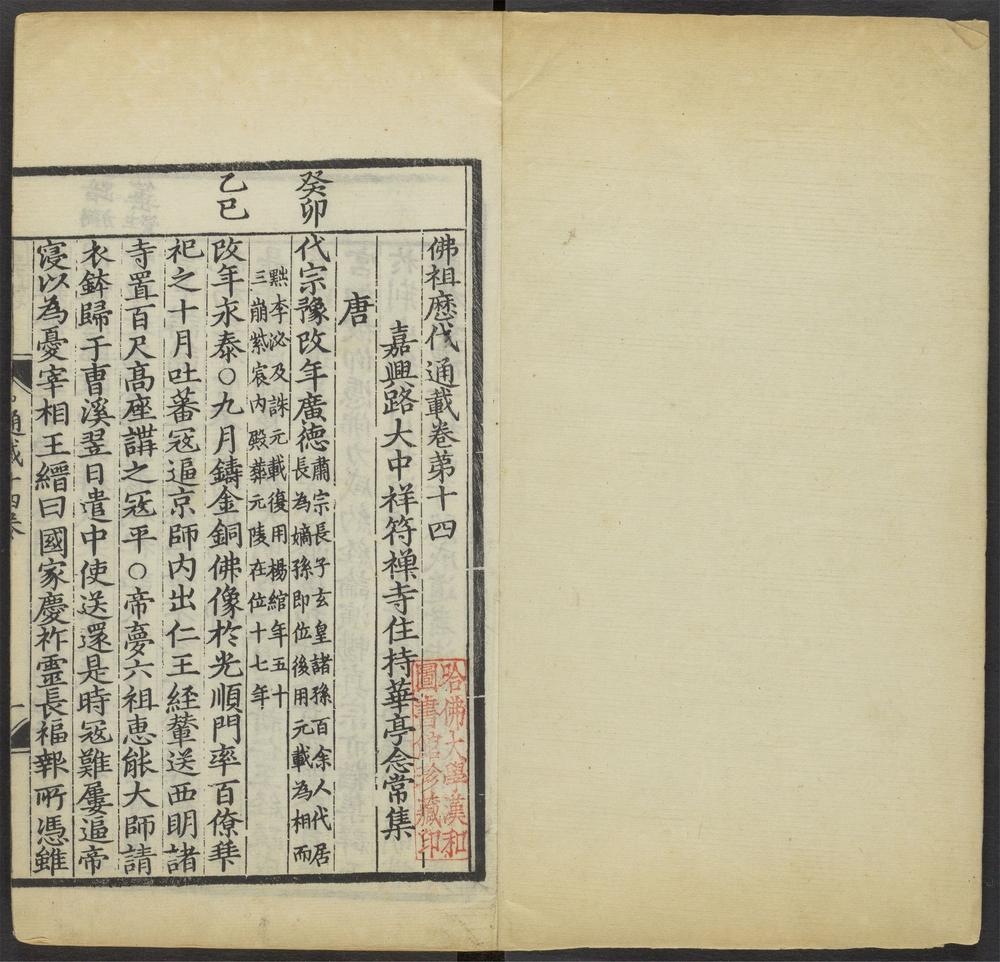 佛祖歷代通載卷第十四
嘉興路大中祥符禪寺住持華亭念常集
唐
癸卯
代宗豫改年廣德肅宗長子玄皇諸孫百余人代居
長為嫡孫即位後用元載為相而
黜李泌及誅元載復用楊綰年五十
三崩紫宸內殿葬元陵在位十七年
乙巳
改年永泰○九月鑄金銅佛像於光順門率百僚拜
祀之十月吐蕃寇逼京師內出仁王経輦送西明諸
寺置百尺高座講之寇平○帝夢六祖惠能大師請
衣鉢歸于曹溪翌日遣中使送還是時寇難屢逼帝
寖以為憂宰相王縉曰國家慶祚靈長福報所憑雖
通載十四卷
哈佛大學漢和
圖書館珍藏印